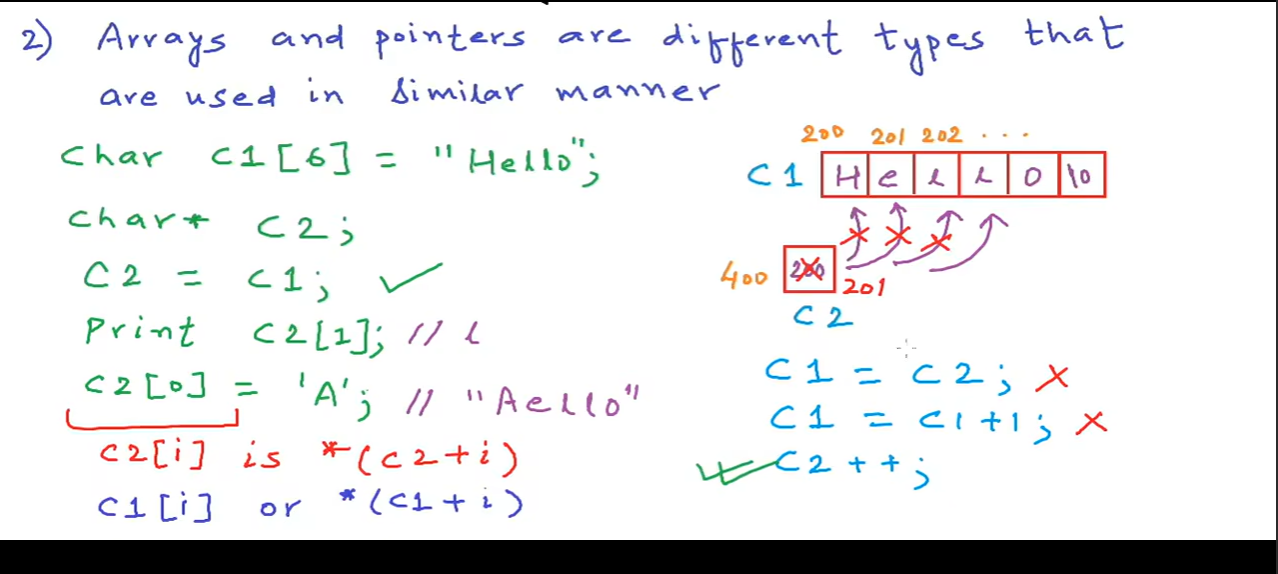 2) Arrays and pointers are different types that
are used in similar manner
Char C1[6] = "Hello";
Char* C2;
C2 = C1;
Print C2[1]; // l
C2[0] = 'A'; // "Aello"
C2[i] is *(C2+i)
C1[i] or *(C1+i)
200 201 202 ...
C1 H e l l o \0
400 200 201
C2
C1 = C2; X
C1 = C1+1; X
C2++;